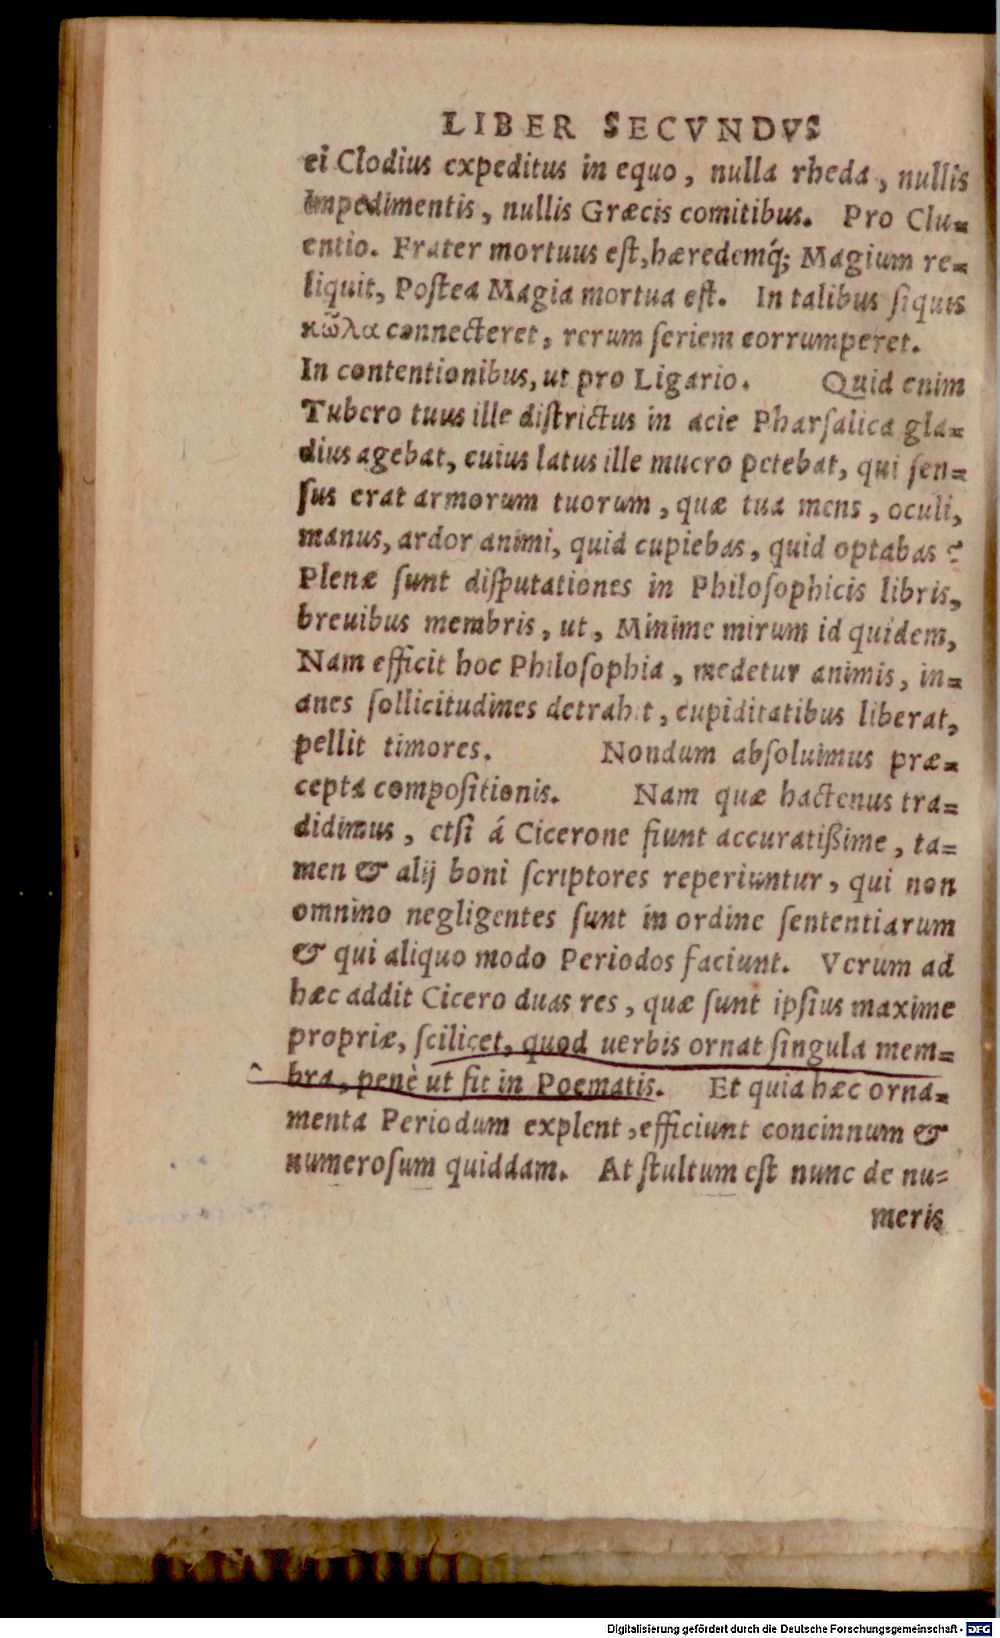 LIBER SECVNDVS
ei Clodius expeditus in equo, nulla rheda, nullis
impedimentis, nullis Græcis comitibus. Pro Clu=
entio. Frater mortuus eſt, hæredemq́; Magium re=
liquit, Poſtea Magia mortua eſt. In talibus ſiquis
κῶλα connecteret, rerum ſeriem corrumperet.
In contentionibus, ut pro Ligario. Quid enim
Tubero tuus ille diſtrictus in acie Pharſalica gla=
dius agebat, cuius latus ille mucro petebat, qui ſen=
ſus erat armorum tuorum, quæ tua mens, oculi,
manus, ardor animi, quid cupiebas, quid optabas?
Plenæ ſunt diſputationes in Philoſophicis libris,
breuibus membris, ut, Minime mirum id quidem,
Nam efficit hoc Philoſophia, medetur animis, in=
anes ſollicitudines detrahit, cupiditatibus liberat,
pellit timores. Nondum abſoluimus præ=
cepta compoſitionis. Nam quæ hactenus tra=
didimus, etſi á Cicerone fiunt accuratißime, ta=
men & alij boni ſcriptores reperiuntur, qui non
omnino negligentes ſunt in ordine ſententiarum
& qui aliquo modo Periodos faciunt. Verum ad
hæc addit Cicero duas res, quæ ſunt ipſius maxime
propriæ, ſcilicet, quod uerbis ornat ſingula mem=
bra, penè ut fit in Poematis. Et quia hæc orna=
menta Periodum explent, efficiunt concinnum &
numeroſum quiddam. At ſtultum eſt nunc de nu=
meris
Digitalisierung gefördert durch die Deutsche Forschungsgemeinschaft - DFG